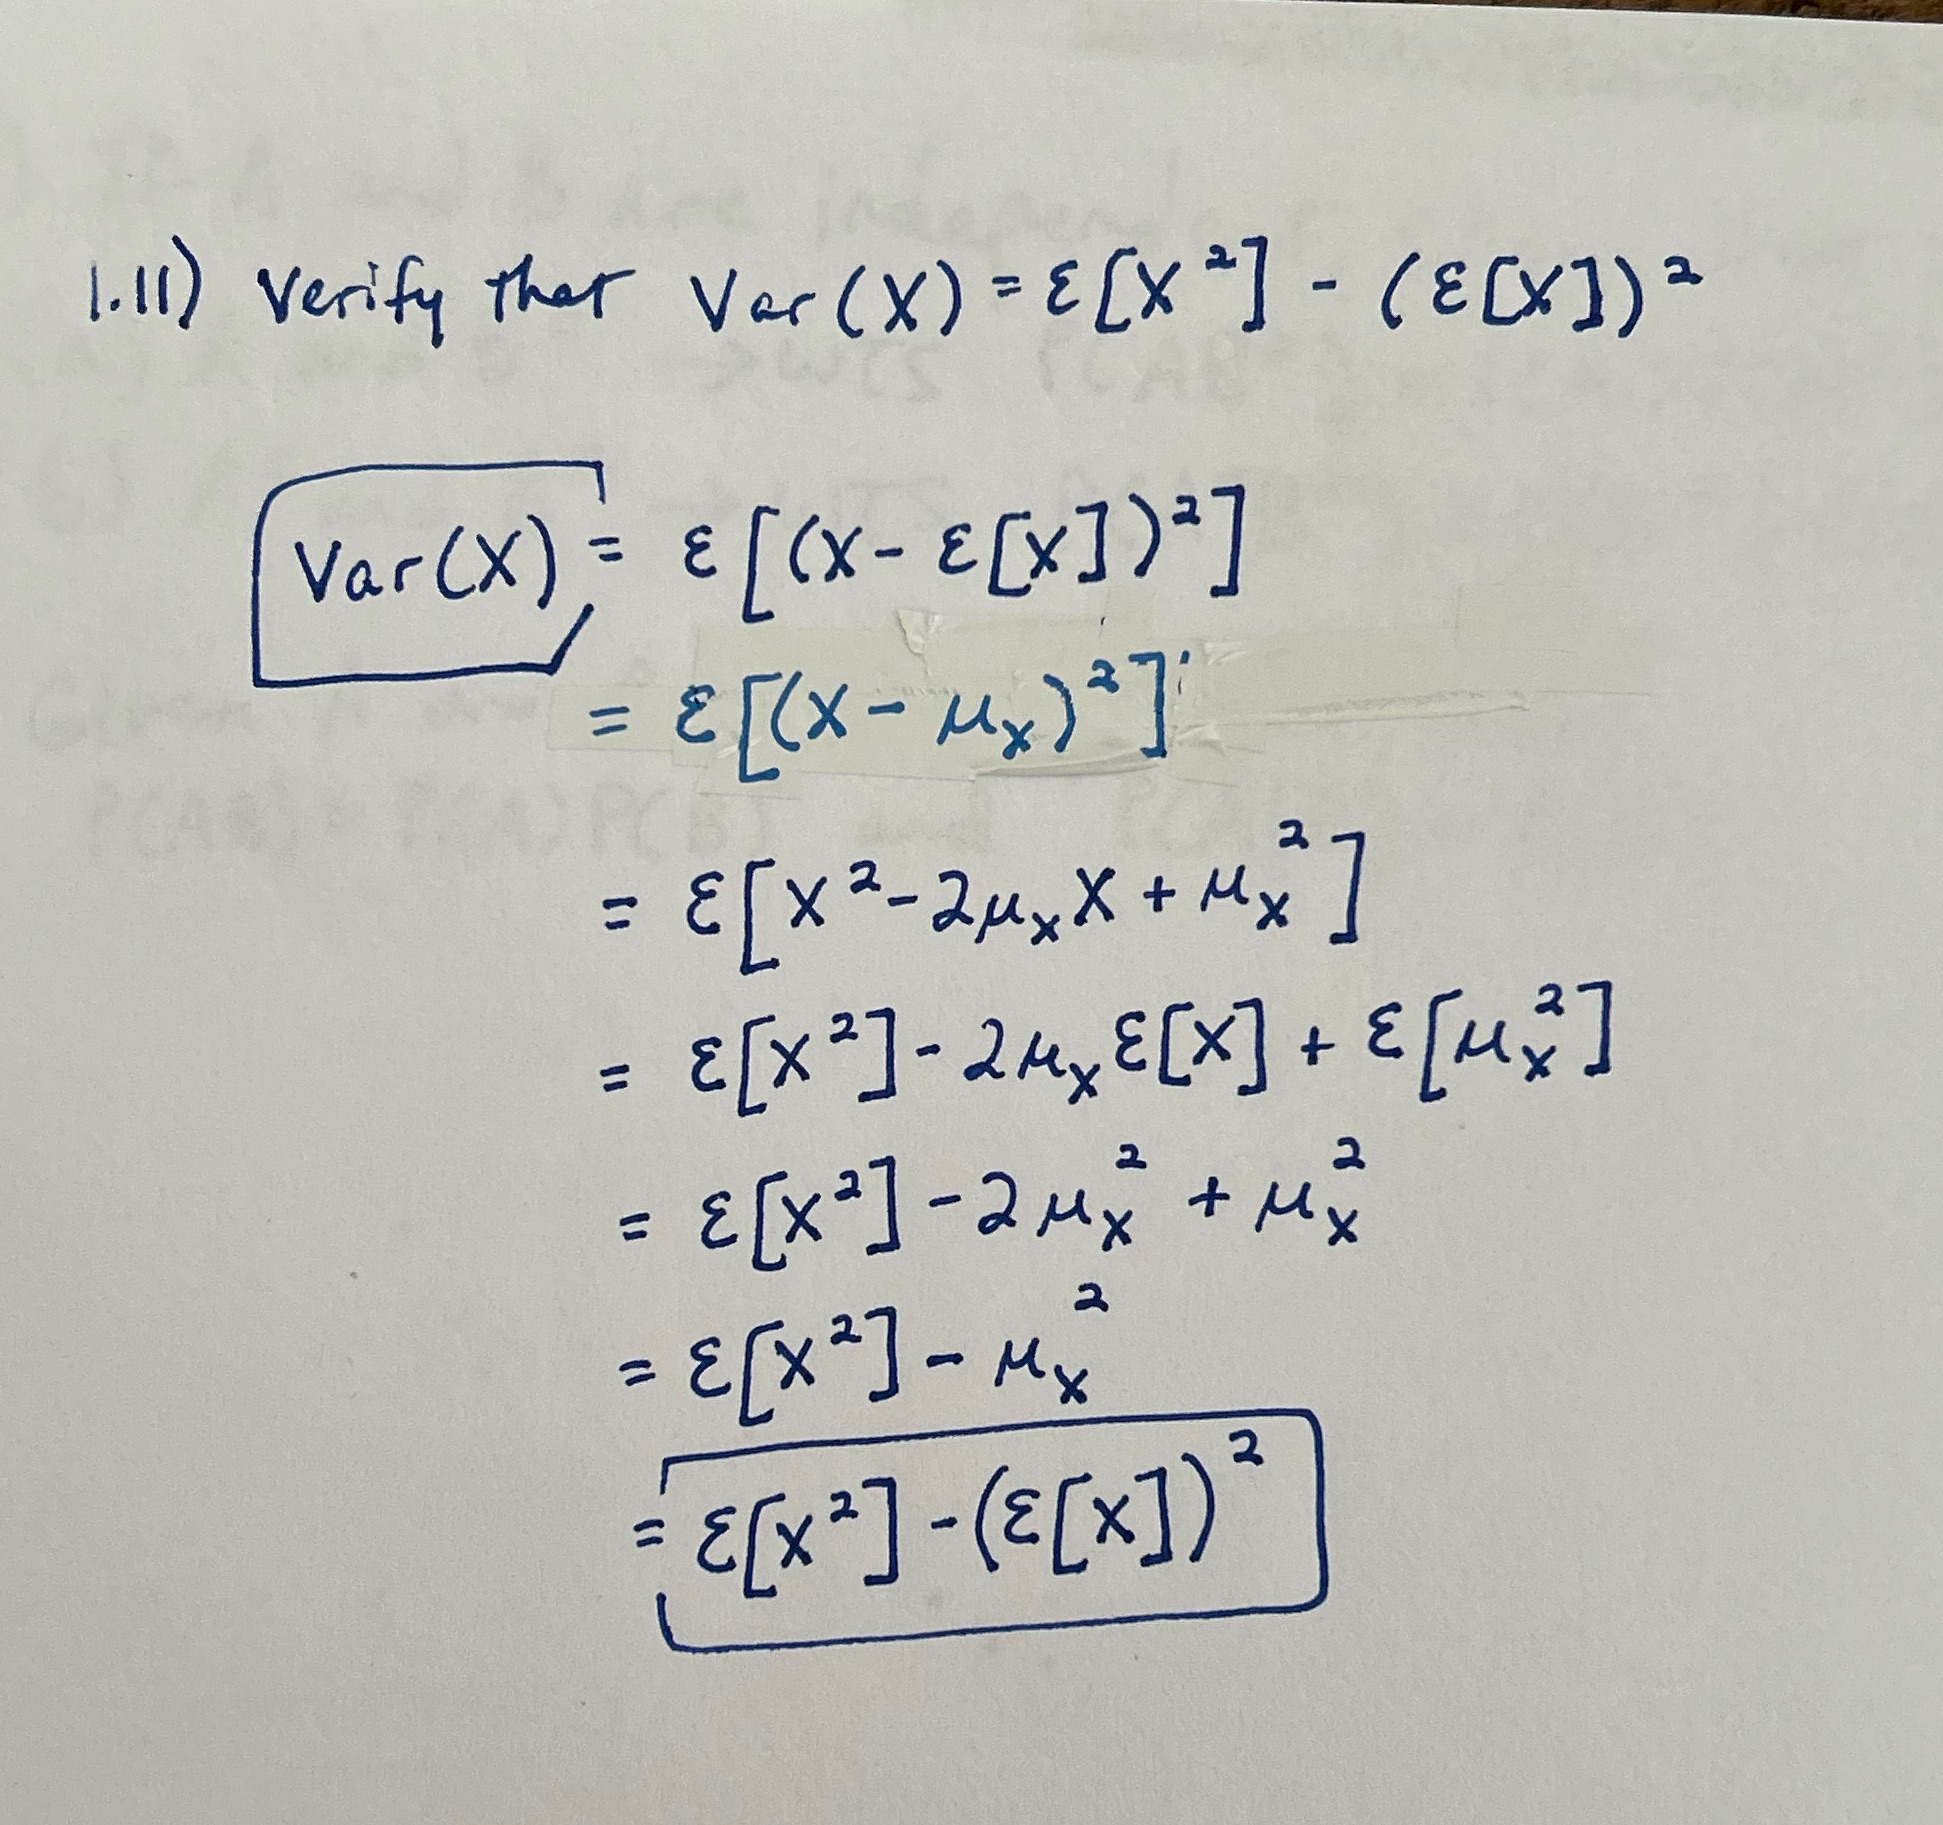 1.11) Verify that Var(X) = ε[X²] - (ε[X])²
Var(X) = ε[(X - ε[X])²]
= ε[(X - μₓ)²]
= ε[X² - 2μₓX + μₓ²]
= ε[X²] - 2μₓε[X] + ε[μₓ²]
= ε[X²] - 2μₓ² + μₓ²
= ε[X²] - μₓ²
= ε[X²] - (ε[X])²